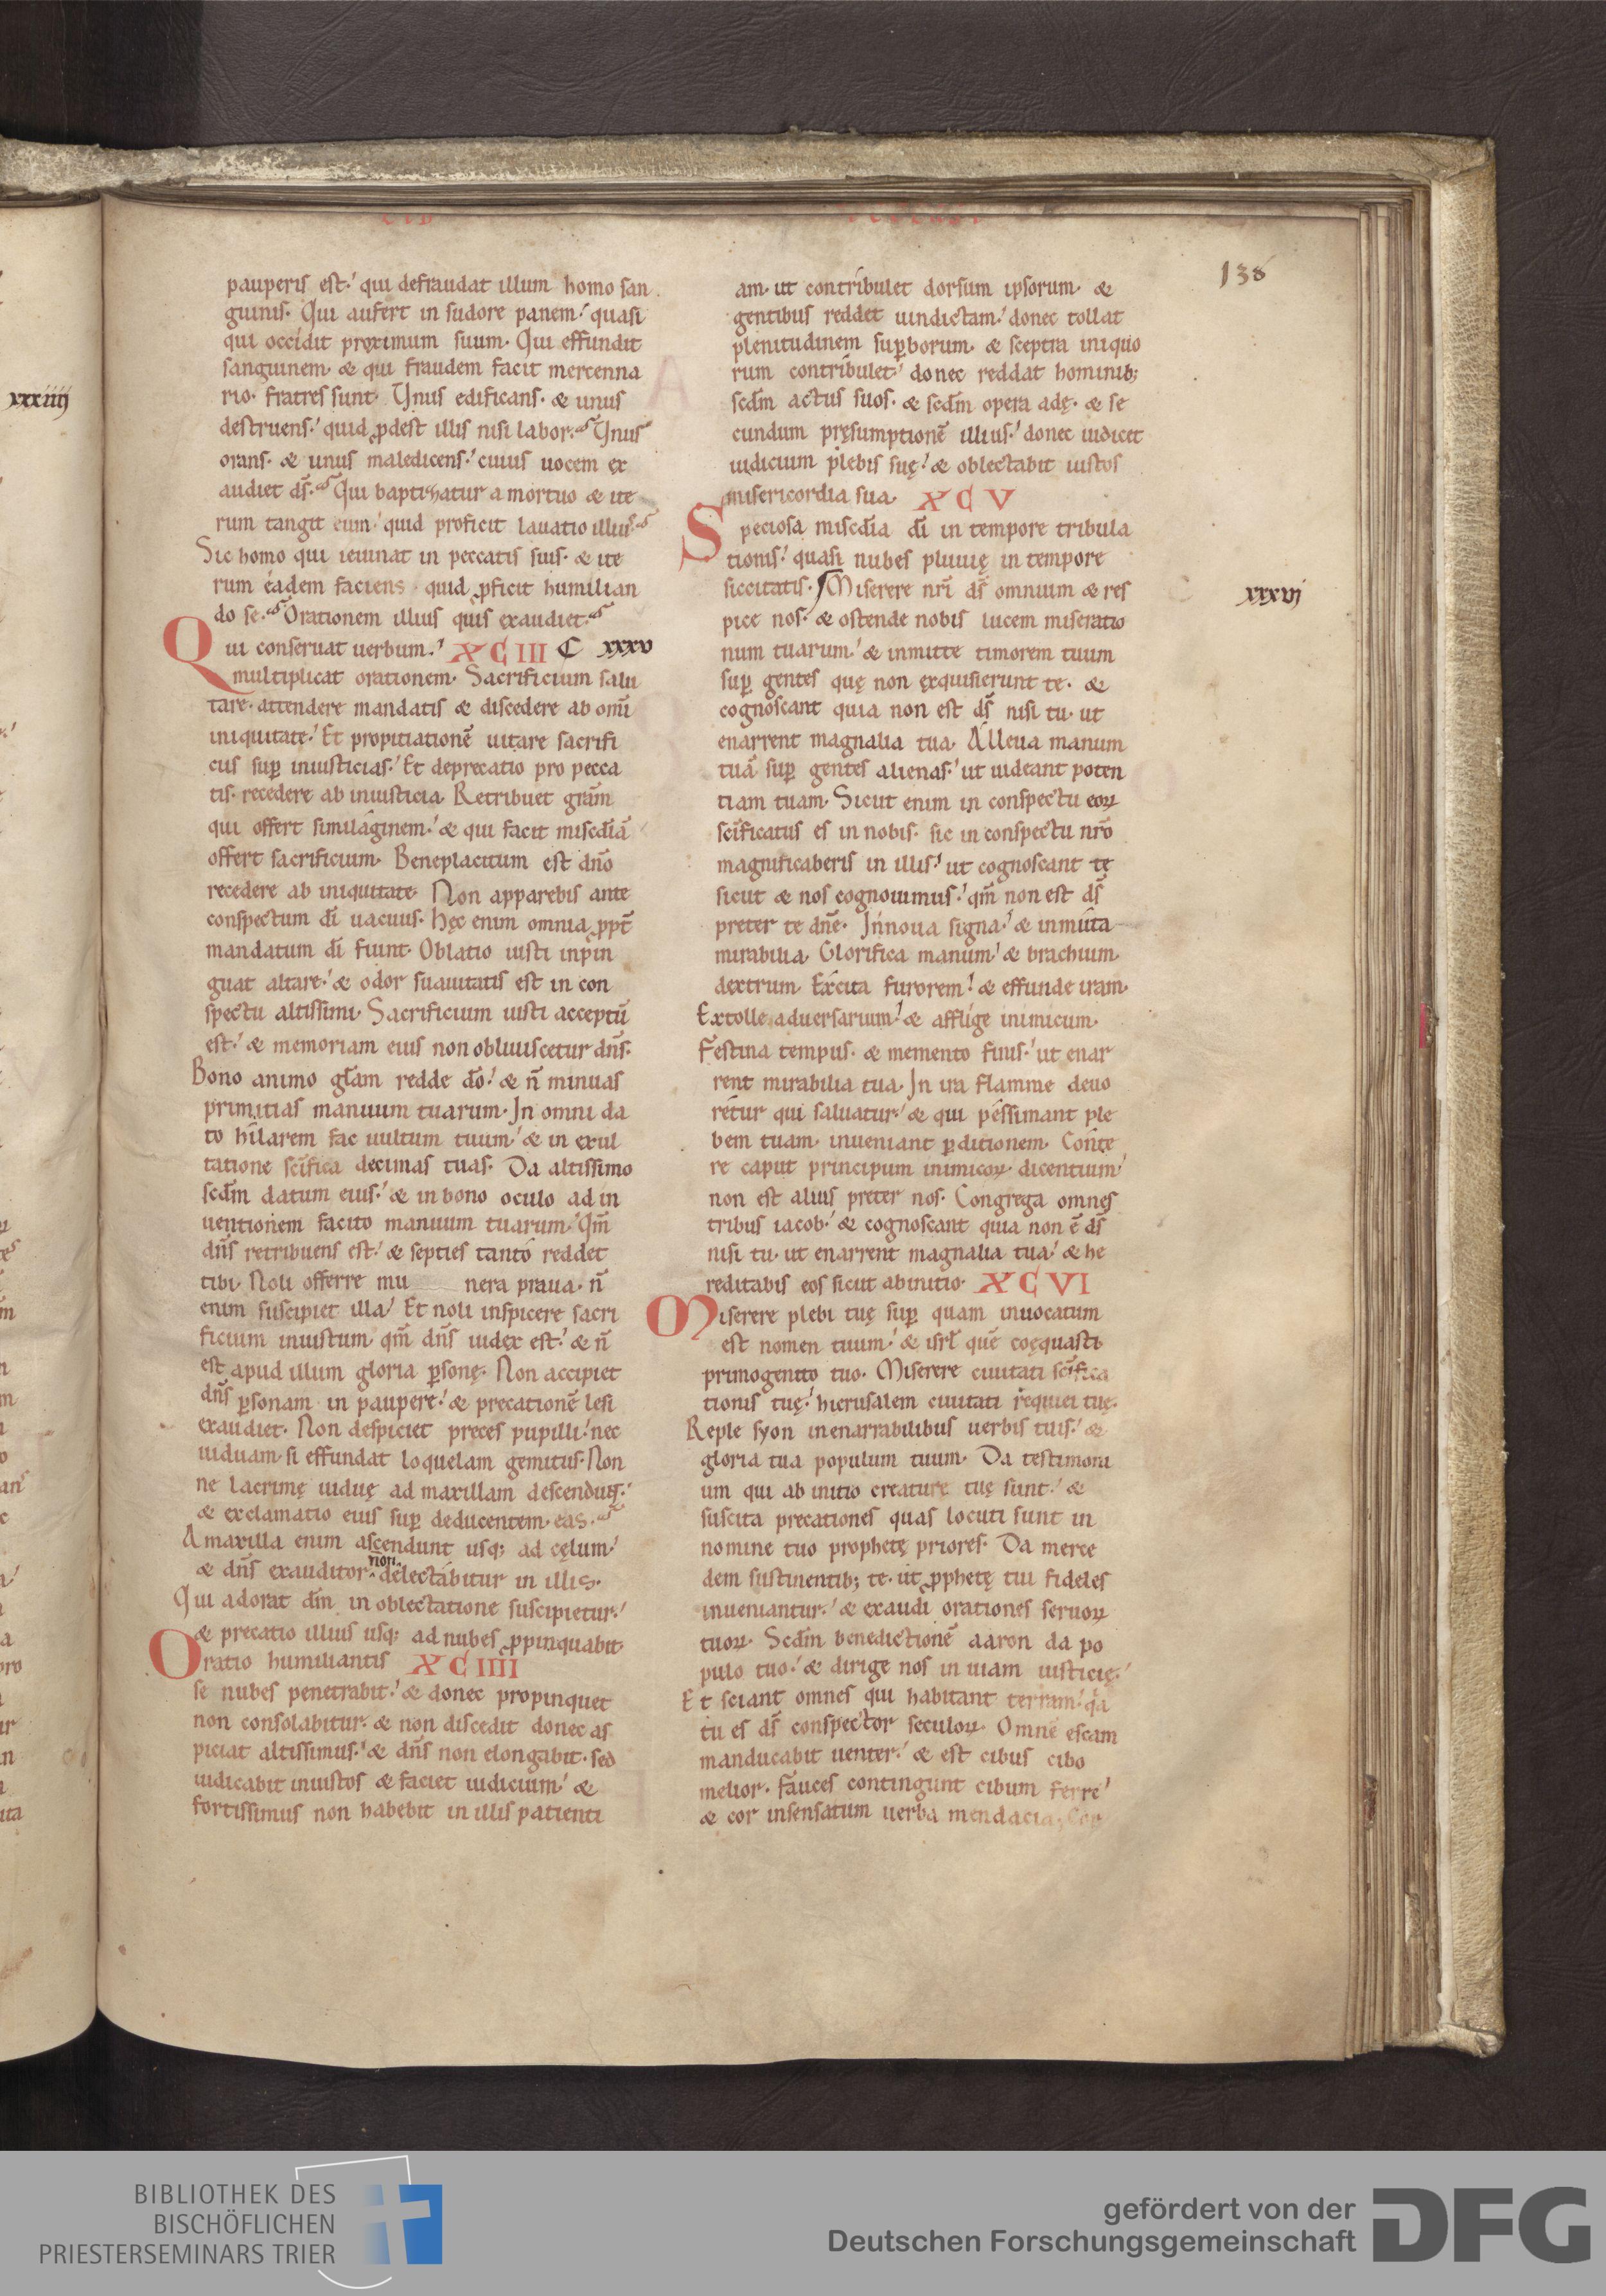 138
pauperis est.' qui defraudat illum homo san
guinis. Qui aufert in sudore panem.' quasi
qui occidit pręximum suum. Qui effundit
sanguinem. & qui fraudem facit mercenna
rio. fratres sunt. Unus edificans. & unus
destruens.' quid ꝓdest illis nisi labor. Unus
orans. & unus maledicens.' cuius uocem ex
audiet ds̄. Qui baptizatur a mortuo & ite
rum tangit eum.' quid proficit lauatio illius.
Sic homo qui ieiunat in peccatis suis. & ite
rum eadem faciens. quid ꝓficit humilian
do se. Orationem illius quis exaudiet.
Qui conseruat uerbum.' XCIII C xxxv
multiplicat orationem. Sacrificium salu
tare. attendere mandatis & discedere ab omī
iniquitate.' Et propitiationē uitare sacrifi
cus suꝑ iniusticias.' Et deprecatio pro pecca
tis. recedere ab iniusticia. Retribuet grām
qui offert similaginem.' & qui facit miscdiā
offert sacrificium. Beneplacitum est dn̄o
recedere ab iniquitate. Non apparebis ante
conspectum dī uacuus. hęc enim omnia ꝓpt̄
mandatum dī fiunt. Oblatio iusti inpin
guat altare.' & odor suauitatis est in con
spectu altissimi. Sacrificium iusti acceptū
est.' & memoriam eius non obliuiscetur dn̄s.
Bono animo glām redde dō.' & n̄ minuas
primitias manuum tuarum. In omni da
to hilarem fac uultum tuum.' & in exul
tatione scīfica decimas tuas. Da altissimo
scdm̄ datum eius.' & in bono oculo ad in
uentionem facito manuum tuarum. Qm̄
dn̄s retribuens est.' & septies tanto reddet
tibi. Noli offerre mu nera praua. n̄
enim suscipiet illa.' Et noli inspicere sacri
ficium iniustum. qm̄ dn̄s iudex est.' & n̄
est apud illum gloria ꝑsonę. Non accipiet
dn̄s ꝑsonam in paupere.' & precationē lesi
exaudiet. Non despiciet preces pupilli.' nec
uiduam. si effundat loquelam gemitus. Non
ne lacrimę uiduę ad maxillam descendun̄t.'
& exclamatio eius suꝑ deducentem eas.
A maxilla enim ascendunt usq; ad cęlum.'
& dn̄s exauditor non delectabitur in illis.
Qui adorat dm̄ in oblectatione suscipietur.'
& precatio illius usq; ad nubes ꝓpinquabit.
Oratio humiliantis XCIIII
se nubes penetrabit.' & donec propinquet
non consolabitur. & non discedit donec as
piciat altissimus.' & dn̄s non elongabit. sed
iudicabit iniustos & faciet iudicium.' &
fortissimus non habebit in illis patienti
am. ut contribulet dorsum ipsorum. &
gentibus reddet uindictam.' donec tollat
plenitudinem suꝑborum. & sceptra iniquo
rum contribulet.' donec reddat hominib;
scdm̄ actus suos. & scdm̄ opera adę. & se
cundum pręsumptionē illius.' donec iudicet
iudicium plebis suę.' & oblectabit iustos
misericordia sua. XCV
Speciosa miscdīa dī in tempore tribula
tionis.' quasi nubes pluuię in tempore
siccitatis. Miserere nrī ds̄ omnium & res
pice nos. & ostende nobis lucem miseratio
num tuarum.' & inmitte timorem tuum
suꝑ gentes quę non exquisierunt te. &
cognoscant quia non est ds̄ nisi tu. ut
enarrent magnalia tua. Alleua manum
tuā suꝑ gentes alienas.' ut uideant poten
tiam tuam. Sicut enim in conspectu eoꝝ
scīficatus es in nobis. sic in conspectu nrō
magnificaberis in illis.' ut cognoscant te
sicut & nos cognouimus.' qm̄ non est ds̄
preter te dn̄e. Innoua signa.' & inmuta
mirabilia. Glorifica manum.' & brachium
dextrum. Excita furorem.' & effunde iram.
Extolle aduersarium.' & afflige inimicum.
Festina tempus. & memento finis.' ut enar
rent mirabilia tua. In ira flamme deuo
retur qui saluatur.' & qui pessimant ple
bem tuam. inueniant ꝑditionem. Conte
re caput principum inimicoꝝ. dicentium.'
non est alius preter nos. Congrega omnes
tribus iacob.' & cognoscant quia non ē ds̄
nisi tu. ut enarrent magnalia tua.' & he
reditabis eos sicut ab initio. XCVI
Miserere plebi tuę suꝑ quam inuocatum
est nomen tuum.' & isrł quē coęquasti
primogenito tuo. Miserere ciuitati scīfica
tionis tuę.' hierusalem ciuitati requiei tuę.
Reple syon inenarrabilibus uerbis tuis.' &
gloria tua populum tuum. Da testimoni
um qui ab initio creature tuę sunt.' &
suscita precationes quas locuti sunt in
nomine tuo prophetę priores. Da merce
dem sustinentib; te. ut ꝓphetę tui fideles
inueniantur.' & exaudi orationes seruoꝝ
tuoꝝ. Scdm̄ benedictionē aaron da po
pulo tuo.' & dirige nos in uiam iusticię.'
Et sciant omnes qui habitant terram.' qa
tu es ds̄ conspector seculoꝝ. Omne escam
manducabit uenter.' & est cibus cibo
melior. Fauces contingunt cibum ferre.'
& cor insensatum uerba mendacia. Cor
xxxiiij
xxxvj
BIBLIOTHEK DES
BISCHÖFLICHEN
PRIESTERSEMINARS TRIER
gefördert von der
Deutschen Forschungsgemeinschaft
DFG